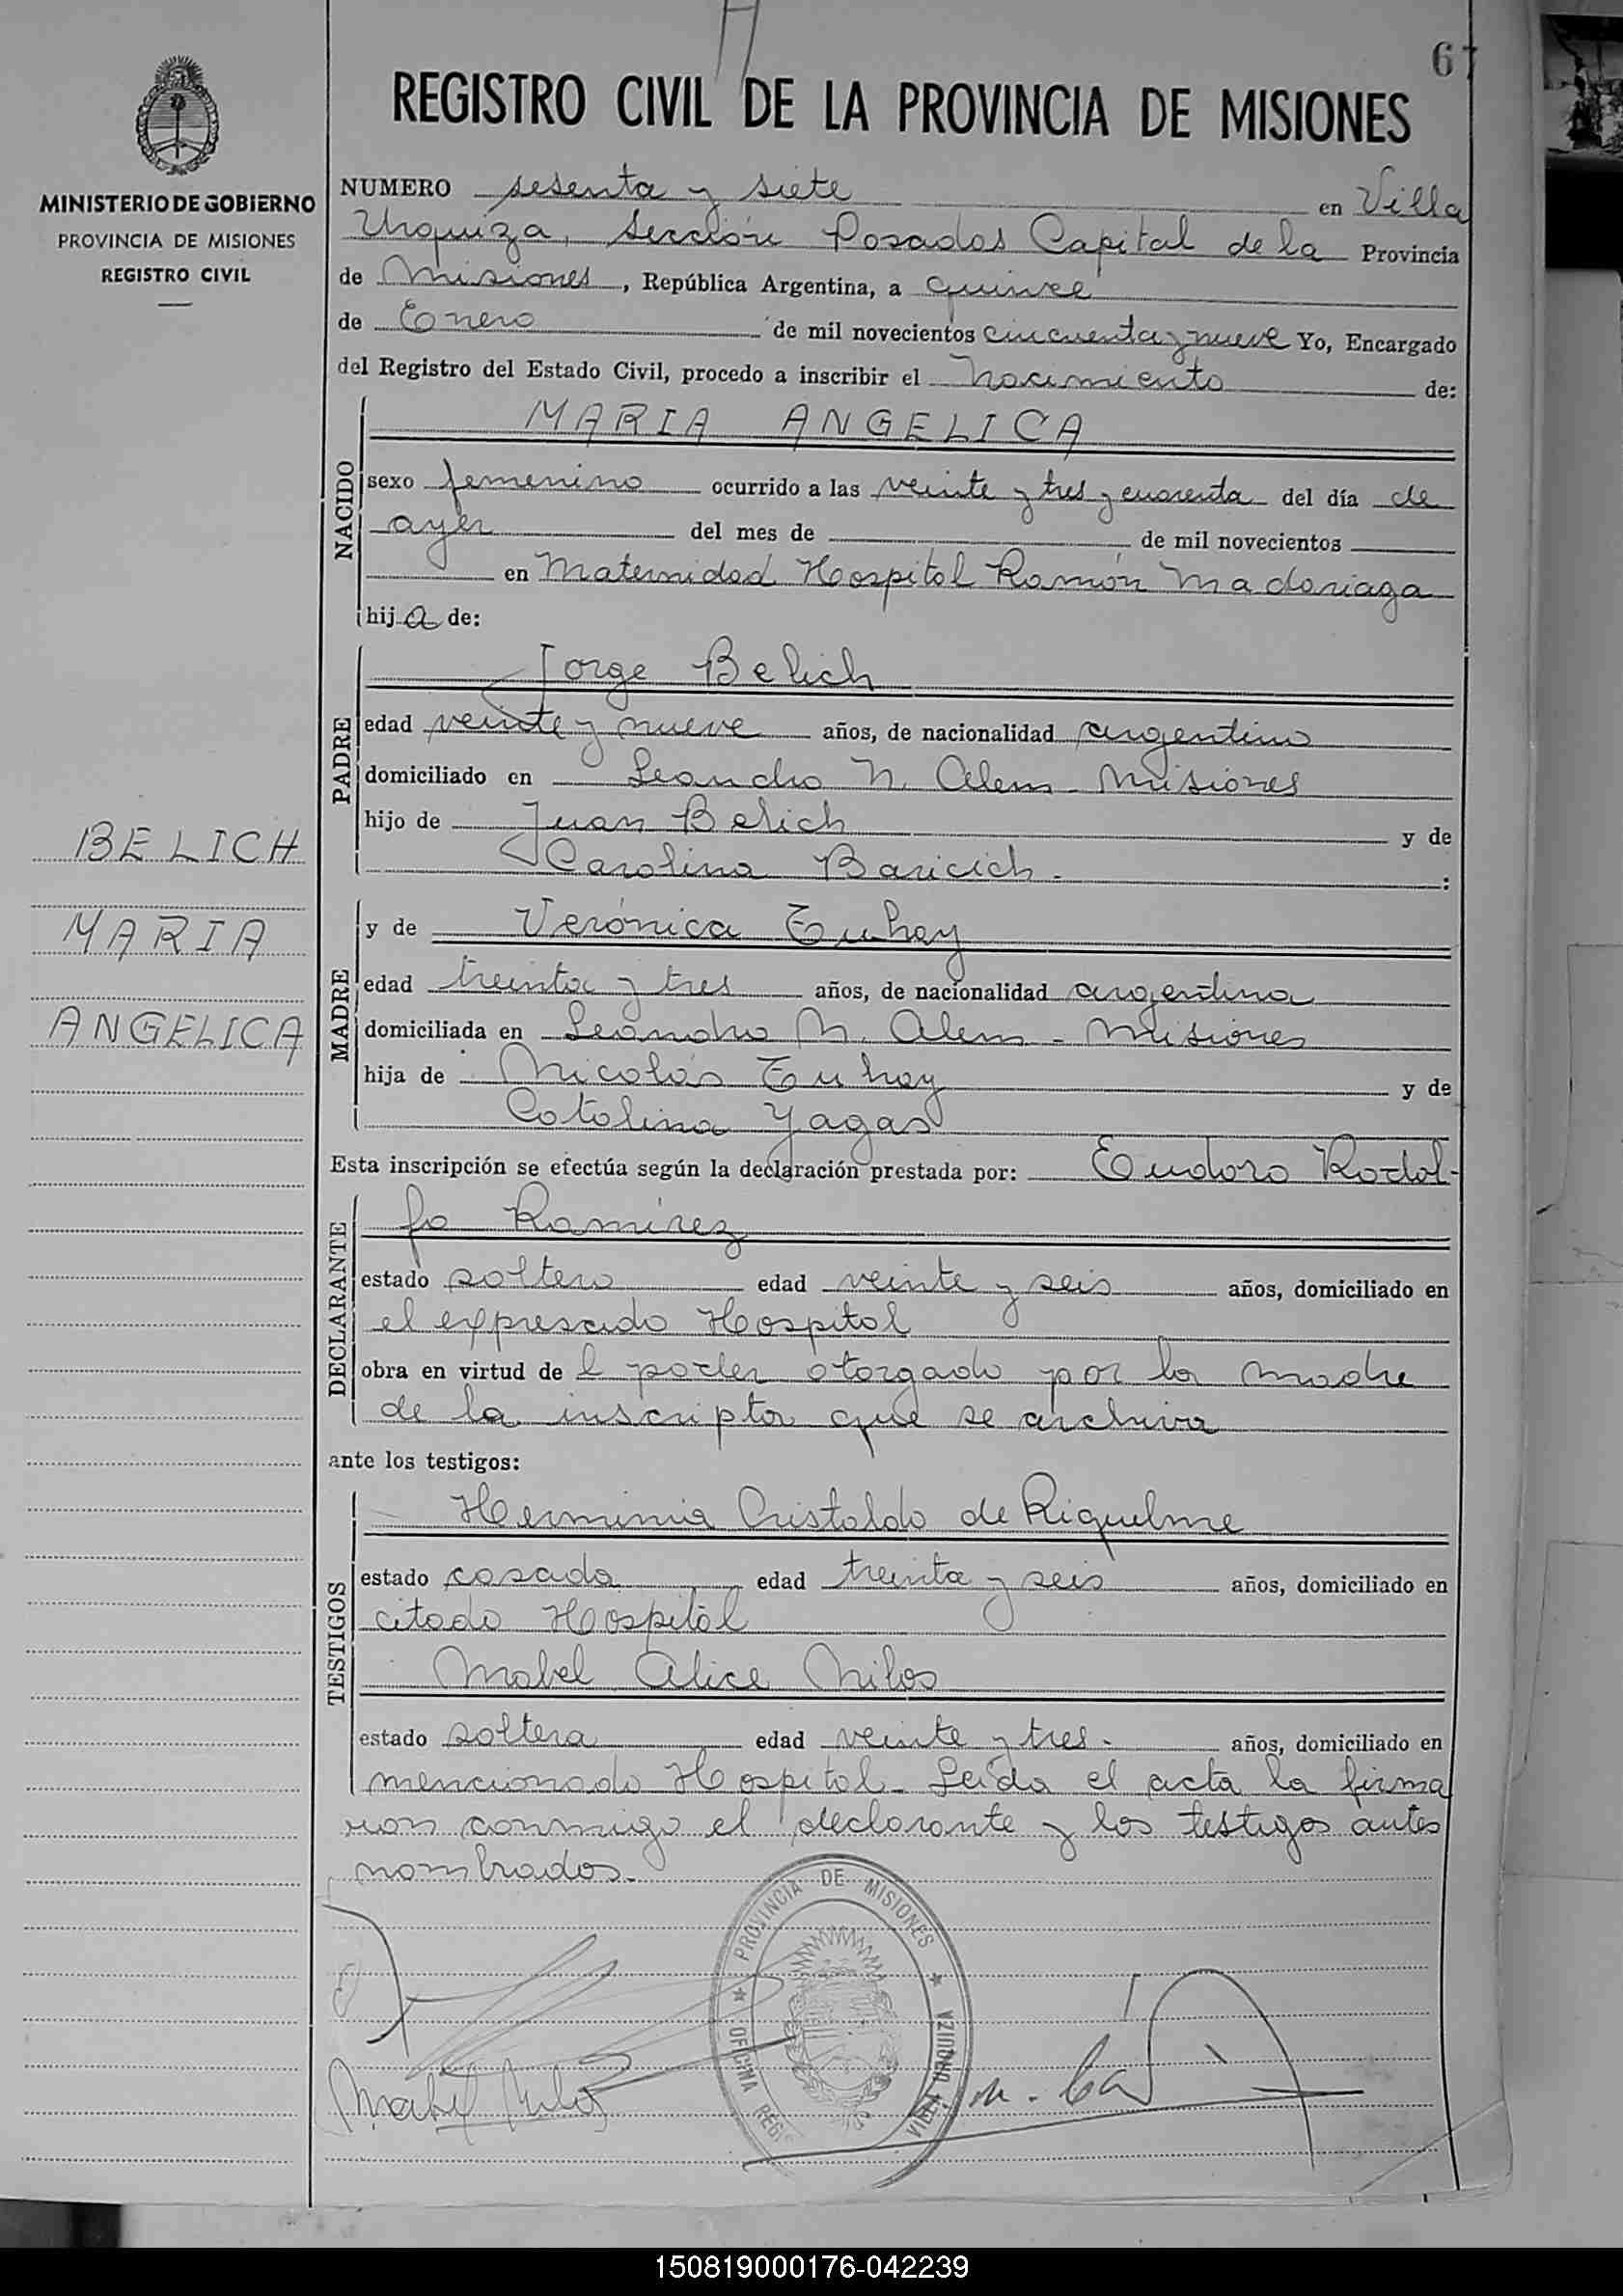 67
REGISTRO CIVIL DE LA PROVINCIA DE MISIONES
MINISTERIO DE GOBIERNO
PROVINCIA DE MISIONES
REGISTRO CIVIL
NUMERO sesenta y siete en Villa
Urquiza, sección Posadas Capital de la Provincia
de Misiones, República Argentina, a quince
de Enero de mil novecientos cincuenta y nueve Yo, Encargado
del Registro del Estado Civil, procedo a inscribir el nacimiento de:
NACIDO
MARIA ANGELICA
sexo femenino ocurrido a las veinte y tres y cuarenta del día de
ayer del mes de de mil novecientos
en Maternidad Hospital Ramón Madariaga
hija de:
PADRE
Jorge Belich
edad veinte y nueve años, de nacionalidad argentino
domiciliado en Leandro N. Alem - Misiones
hijo de Juan Belich y de
Carolina Baricich. :
BELICH
MARIA
ANGELICA
MADRE
y de Verónica Tuhay
edad treinta y tres años, de nacionalidad argentina
domiciliada en Leandro N. Alem - Misiones
hija de Nicolás Tuhay y de
Catalina Yagas
Esta inscripción se efectúa según la declaración prestada por: Eudoro Rodol-
DECLARANTE
fo Ramírez
estado soltero edad veinte y seis años, domiciliado en
el expresado Hospital
obra en virtud de l poder otorgado por la madre
de la inscripta que se archiva
ante los testigos:
TESTIGOS
Herminia Cristaldo de Riquelme
estado casada edad treinta y seis años, domiciliado en
citado Hospital
Mabel Alice Milos
estado soltera edad veinte y tres. años, domiciliado en
mencionado Hospital. Leída el acta la firma
ron conmigo el declarante y los testigos antes
nombrados.
PROVINCIA DE MISIONES
OFICINA REGI
VILLA URQUIZA
Mabel Milos
150819000176-042239